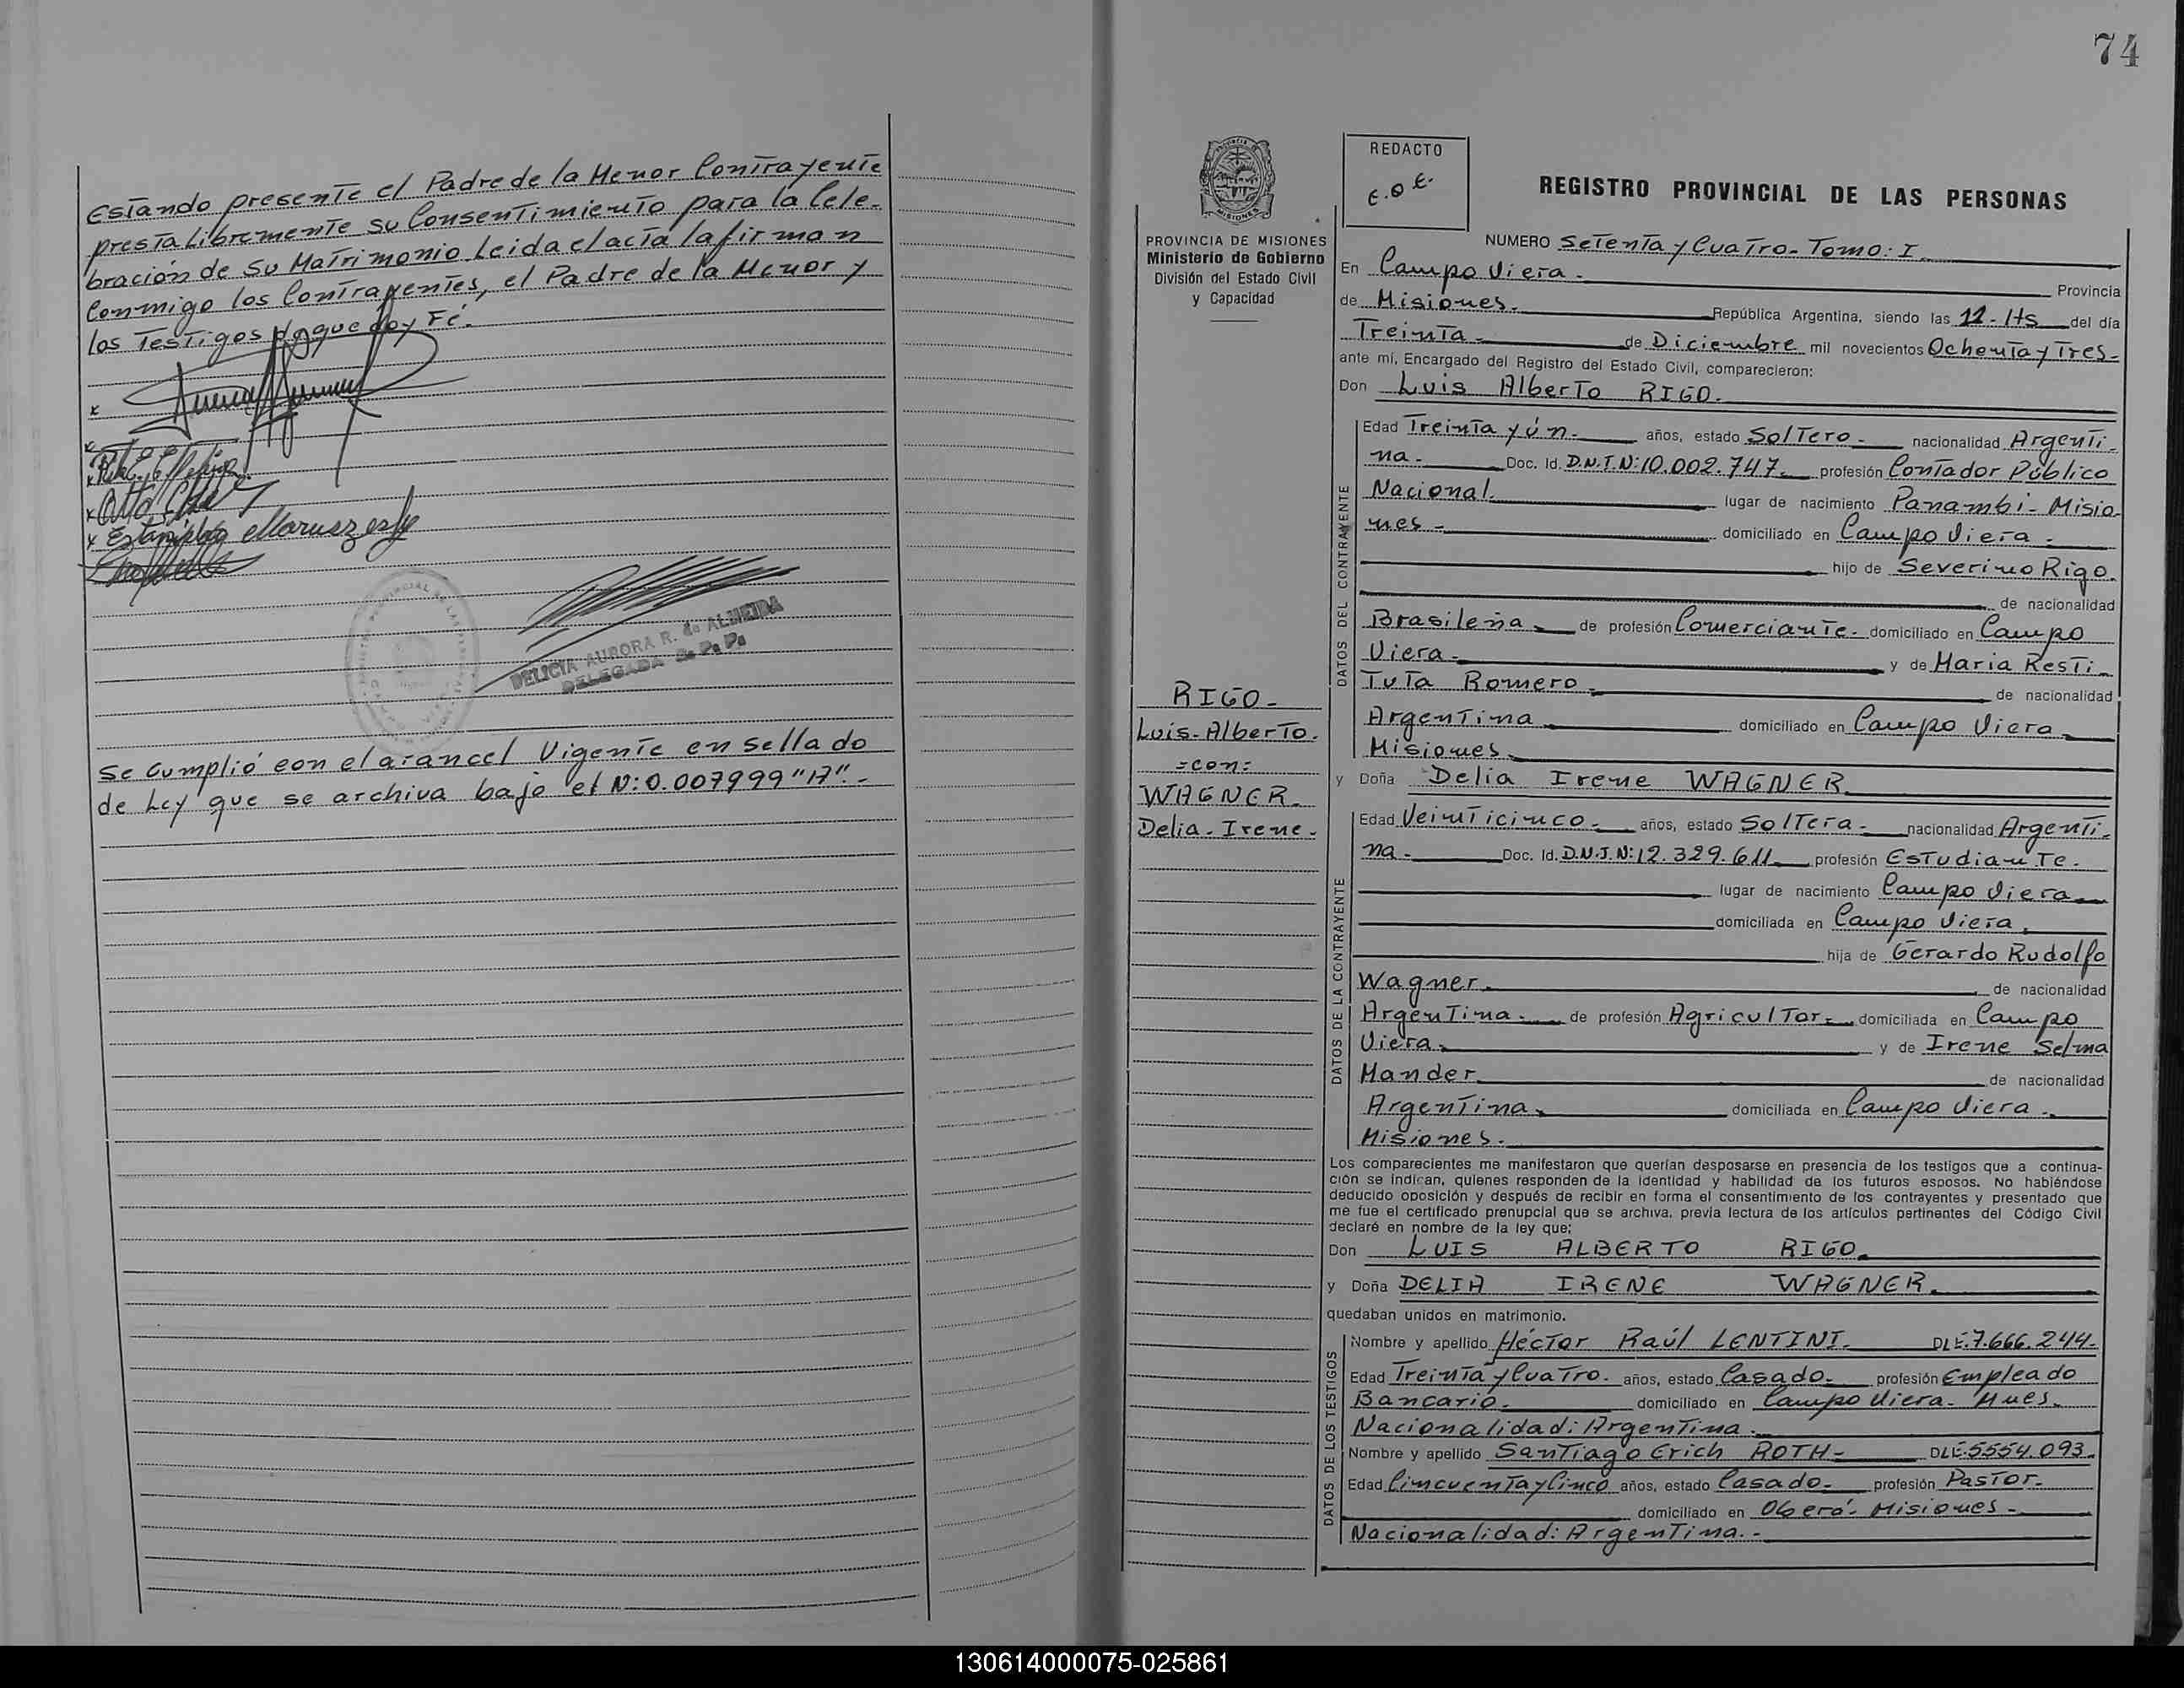 Estando presente el Padre de la Menor Contrayente
presta Libremente su Consentimiento para la Cele-
bración de su Matrimonio Leida el acta la firman
Conmigo los Contrayentes, el Padre de la Menor y
los Testigos de que doy Fé.
x
x
x
x
x Estanislao
DELICIA AURORA R. de ALMEIDA
DELEGADA
Se Cumplió con el arancel Vigente en sellado
de Ley que se archiva bajo el N:0.007999 "A".-
74
PROVINCIA DE MISIONES
Ministerio de Gobierno
División del Estado Civil
y Capacidad
RIGO-
Luis-Alberto.
=con=
WAGNER.
Delia-Irene-
REDACTO
REGISTRO PROVINCIAL DE LAS PERSONAS
NUMERO Setenta y Cuatro- Tomo: I.
En Campo Viera. Provincia
de Misiones. República Argentina, siendo las 11-Hs del día
Treinta de Diciembre mil novecientos Ochenta y Tres-
ante mí, Encargado del Registro del Estado Civil, comparecieron:
Don Luis Alberto RIGO.
DATOS DEL CONTRAYENTE
Edad Treinta y ún- años, estado Soltero- nacionalidad Argenti-
na- Doc. Id. D.N.I.N:10.002.747- profesión Contador Público
Nacional. lugar de nacimiento Panambi- Misio-
nes- domiciliado en Campo Viera-
hijo de Severino Rigo.
de nacionalidad
Brasileña de profesión Comerciante- domiciliado en Campo
Viera- y de Maria Resti-
tuta Romero de nacionalidad
Argentina domiciliado en Campo Viera
Misiones
y Doña Delia Irene WAGNER
DATOS DE LA CONTRAYENTE
Edad Veinticinco- años, estado Soltera- nacionalidad Argenti-
na- Doc. Id. D.N.I.N:12.329.611 profesión Estudiante.
lugar de nacimiento Campo Viera
domiciliada en Campo Viera.
hija de Gerardo Rudolfo
Wagner. de nacionalidad
Argentina. de profesión Agricultor- domiciliada en Campo
Viera. y de Irene Selma
Mander de nacionalidad
Argentina. domiciliada en Campo Viera.
Misiones.
Los comparecientes me manifestaron que querían desposarse en presencia de los testigos que a continua-
ción se indican, quienes responden de la identidad y habilidad de los futuros esposos. No habiéndose
deducido oposición y después de recibir en forma el consentimiento de los contrayentes y presentado que
me fue el certificado prenupcial que se archiva, previa lectura de los artículos pertinentes del Código Civil
declaré en nombre de la ley que:
Don LUIS ALBERTO RIGO
y Doña DELIA IRENE WAGNER.
quedaban unidos en matrimonio.
DATOS DE LOS TESTIGOS
Nombre y apellido Héctor Raúl LENTINI. DLE.7.666.244-
Edad Treinta y Cuatro. años, estado Casado. profesión Empleado
Bancario. domiciliado en Campo Viera- Mnes.
Nacionalidad: Argentina.
Nombre y apellido Santiago Erich ROTH- DLE.5554.093
Edad Cincuenta y Cinco años, estado Casado- profesión Pastor-
domiciliado en Oberá- Misiones-
Nacionalidad: Argentina.-
130614000075-025861